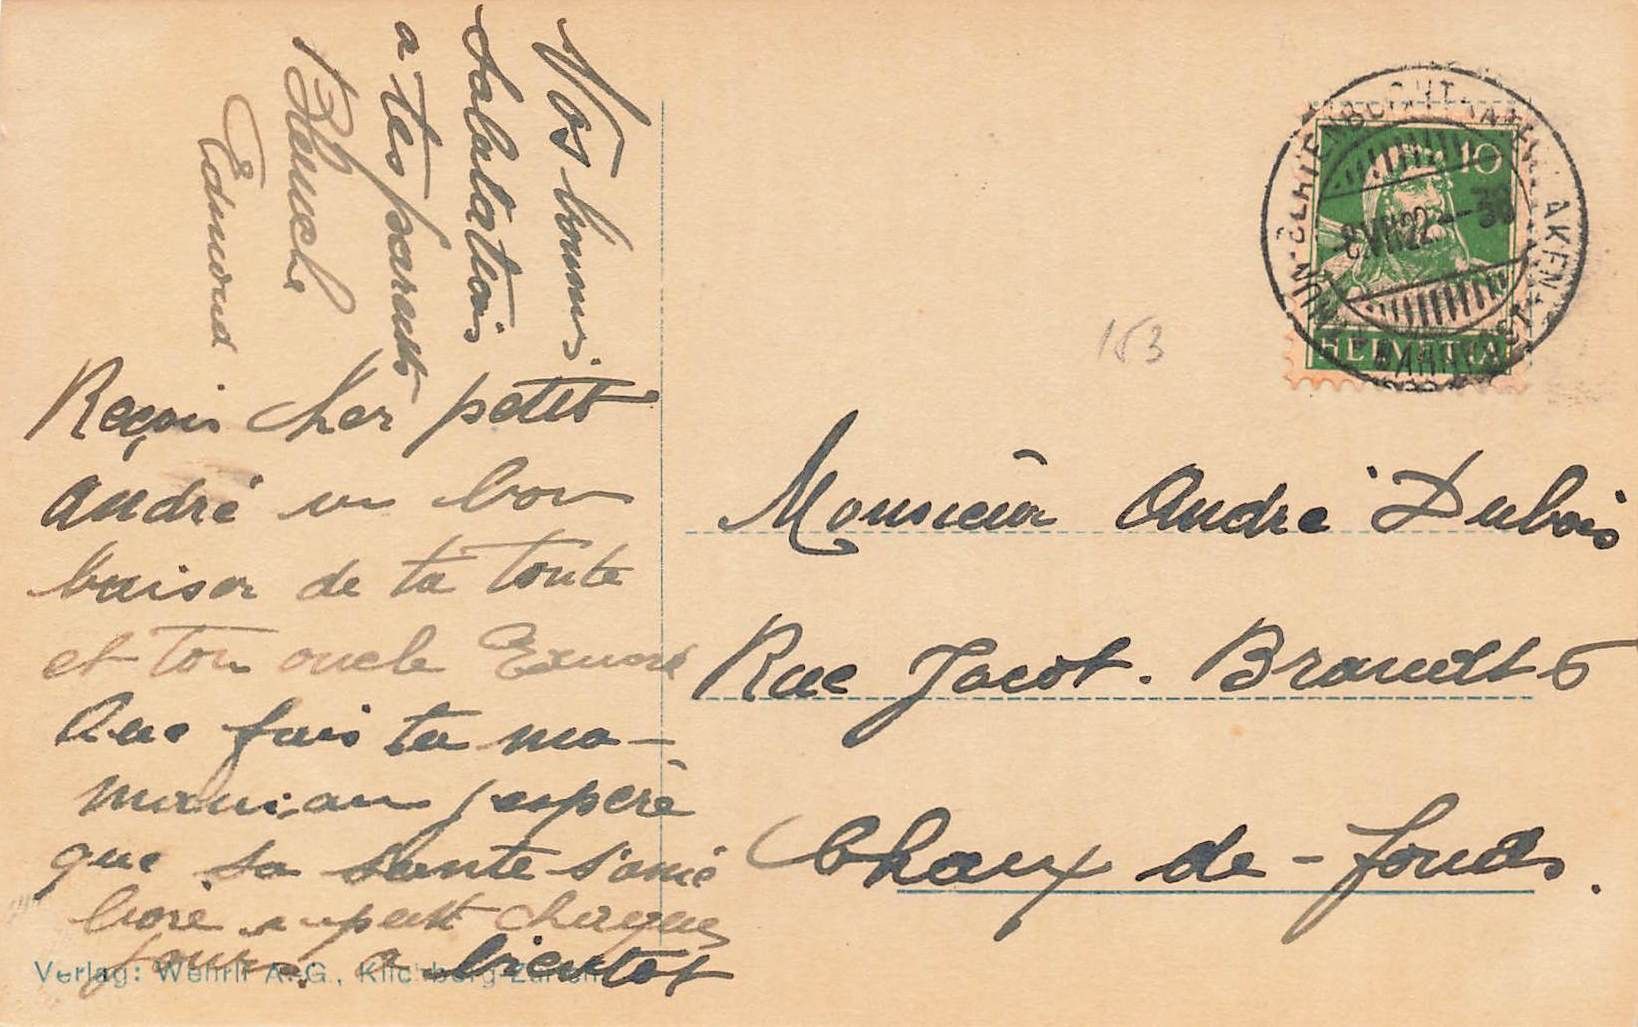 Vos bonnes
Salutations
a tes parents
Blanche
Edmond
Reçois cher petit
André un bon
baiser de ta tante
et ton oncle
Que fais ta ma-
maman j'espère
que sa sante s'amé
liore a petit chaques
jours. a bientot
Verlag: Wehrli A.-G., Kilchberg-Zürich
153
10
8.VII.22
HELVETIA
Monsieur André Dubois
Rue Jacot. Brandt 6
Chaux-de-fonds.